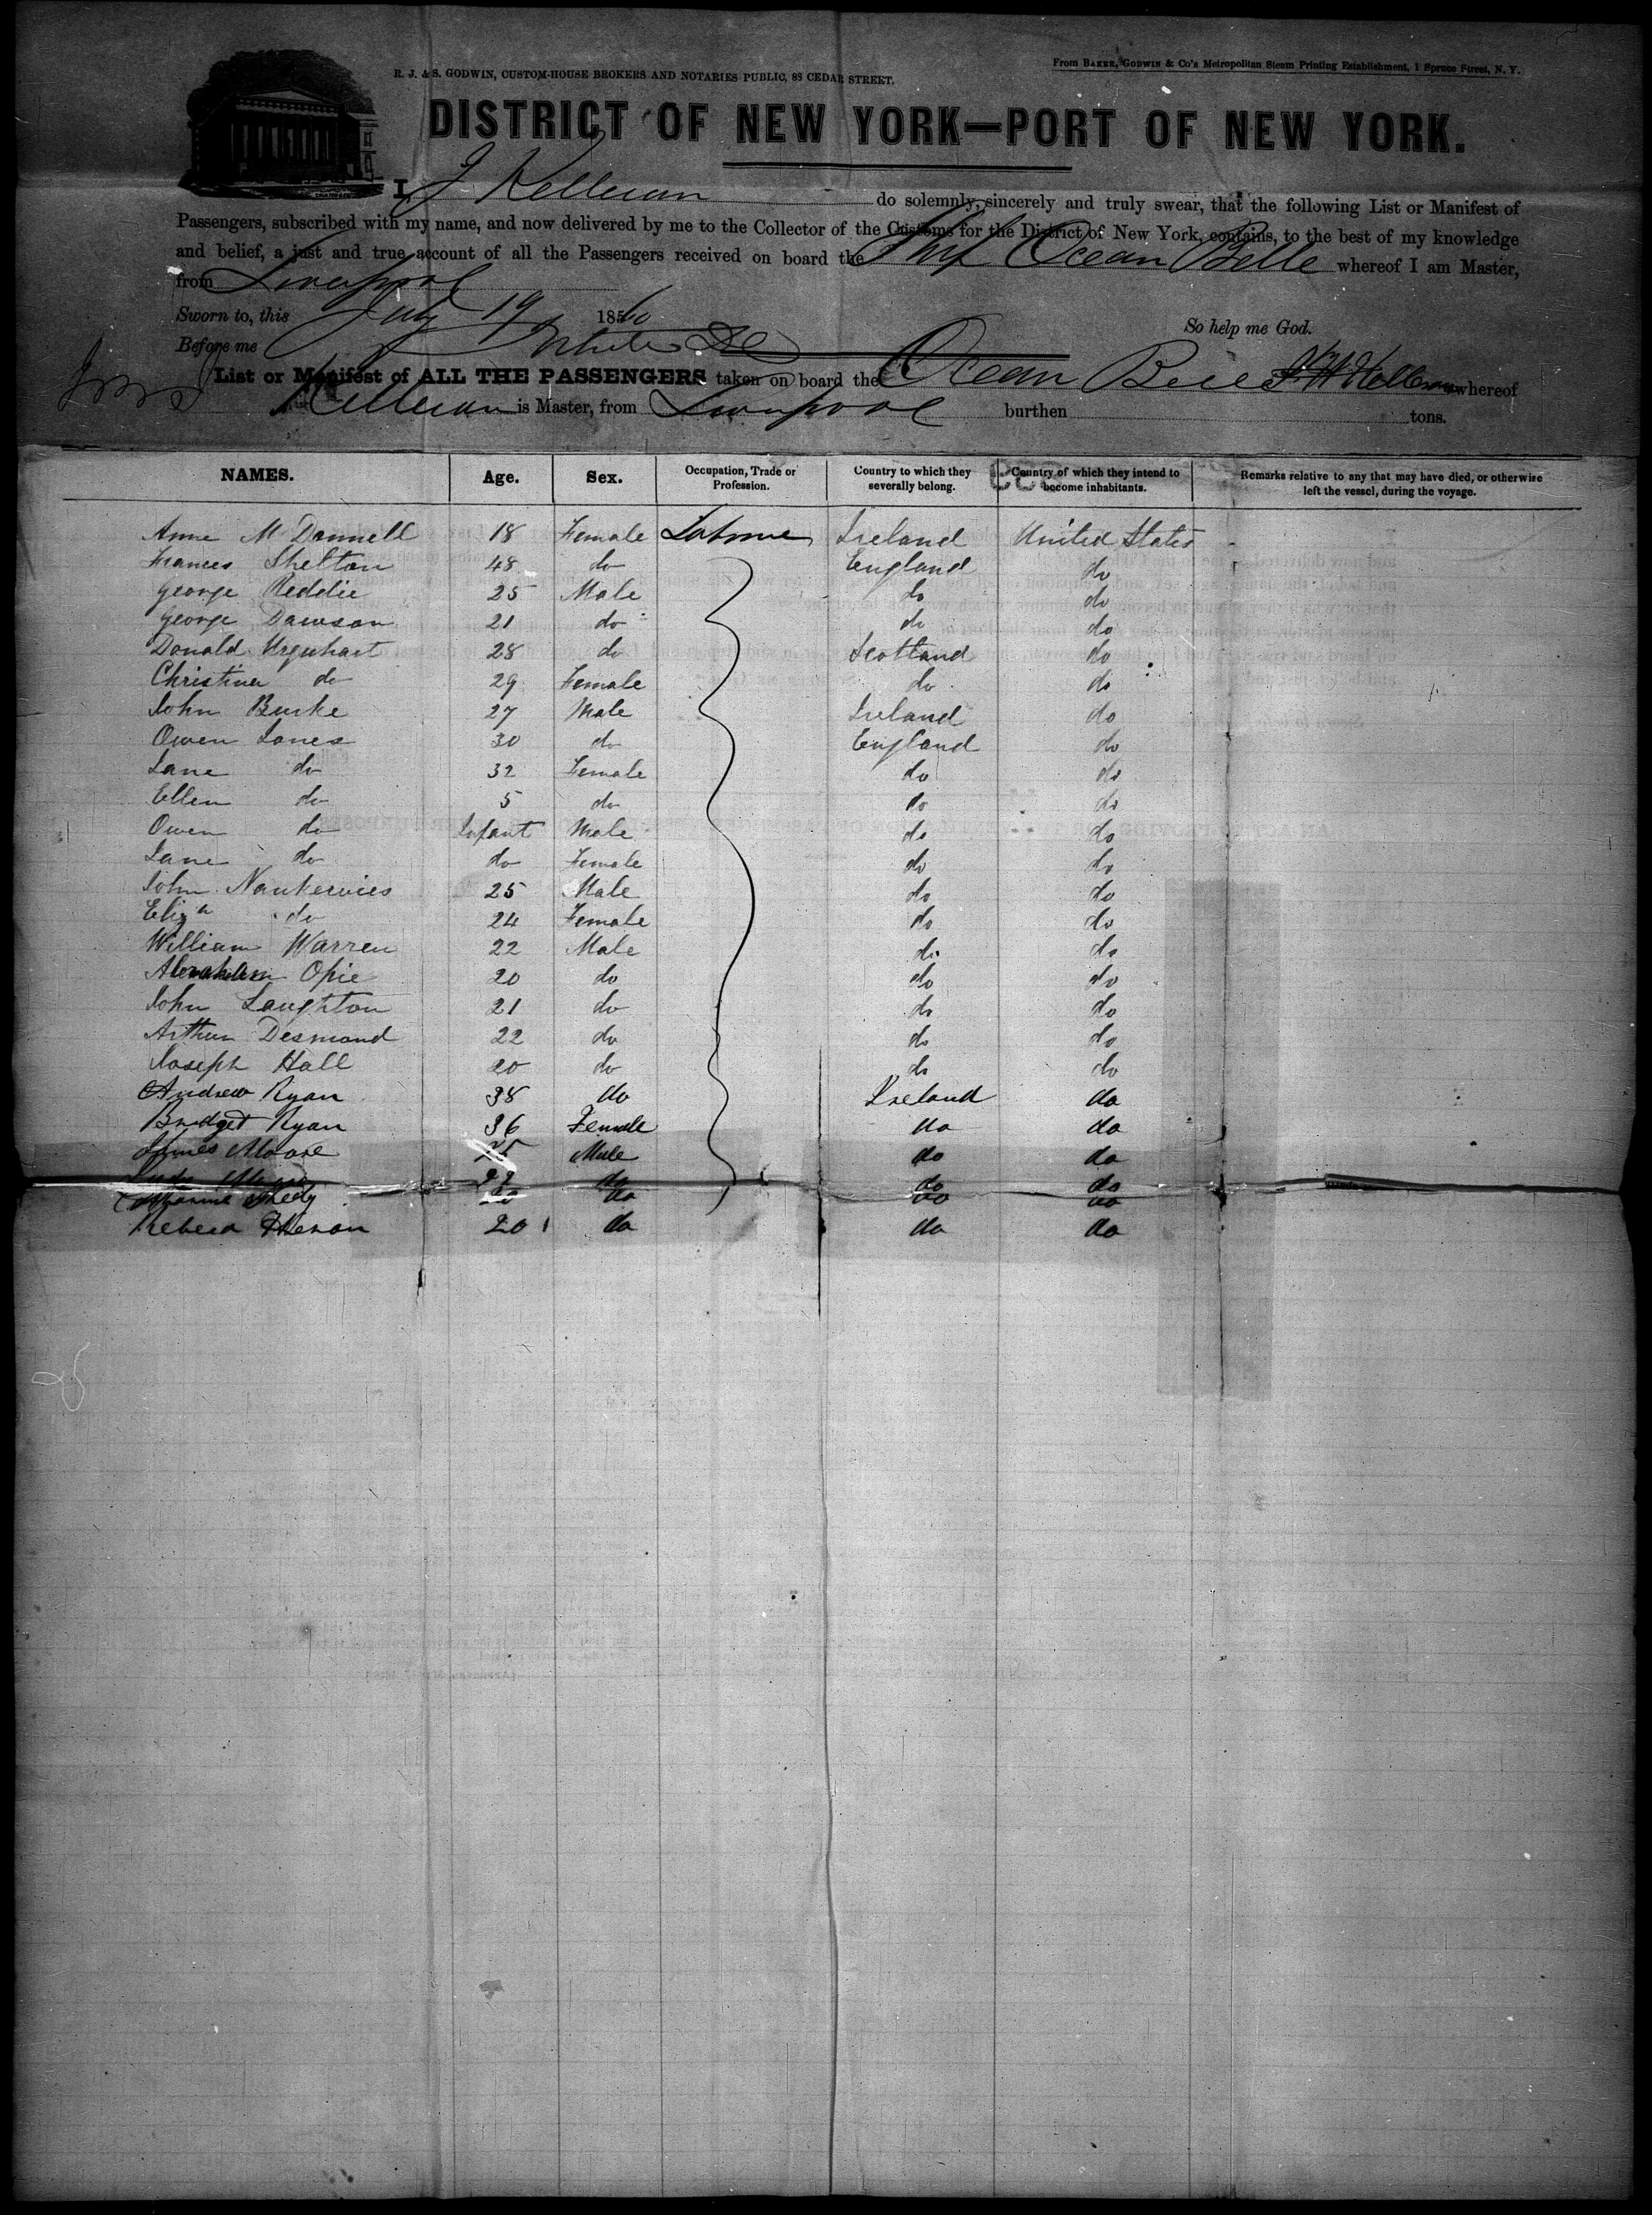 R. J. & S. GODWIN, CUSTOM-HOUSE BROKERS AND NOTARIES PUBLIC, 88 CEDAR STREET.
From BAKER, GODWIN & Co's Metropolitan Steam Printing Establishment, 1 Spruce Street, N. Y.
DISTRICT OF NEW YORK—PORT OF NEW YORK.
I, J Kelleran do solemnly, sincerely and truly swear, that the following List or Manifest of
Passengers, subscribed with my name, and now delivered by me to the Collector of the Customs for the District of New York, contains, to the best of my knowledge
and belief, a just and true account of all the Passengers received on board the Ship Ocean Belle whereof I am Master,
from Liverpool
Sworn to, this July 19 1860
So help me God.
Before me
List or Manifest of ALL THE PASSENGERS taken on board the Ocean Belle whereof
Kelleran is Master, from Liverpool burthen tons.
NAMES. Age. Sex. Occupation, Trade or Profession. Country to which they severally belong. Country of which they intend to become inhabitants. Remarks relative to any that may have died, or otherwise left the vessel, during the voyage.
Anne McDonnell 18 Female Ireland United States
Frances Shelton 48 do England do
George Reddie 25 Male do do
George Dawson 21 do do do
Donald Urquhart 28 do Scotland do
Christina do 29 Female do do
John Burke 27 Male Ireland do
Owen Jones 30 do England do
Jane do 32 Female do do
Ellen do 5 do do do
Owen do Infant Male do do
Jane do do Female do do
John Nankervies 25 Male do do
Elizh do 24 Female do do
William Warren 22 Male do do
Abraham Opie 20 do do do
John Laughton 21 do do do
Arthur Desmond 22 do do do
Joseph Hall 20 do do do
Andrew Ryan 38 do Ireland do
Bridget Ryan 36 Female do do
James Moore Male do do
do do do
do do do
20 do do do